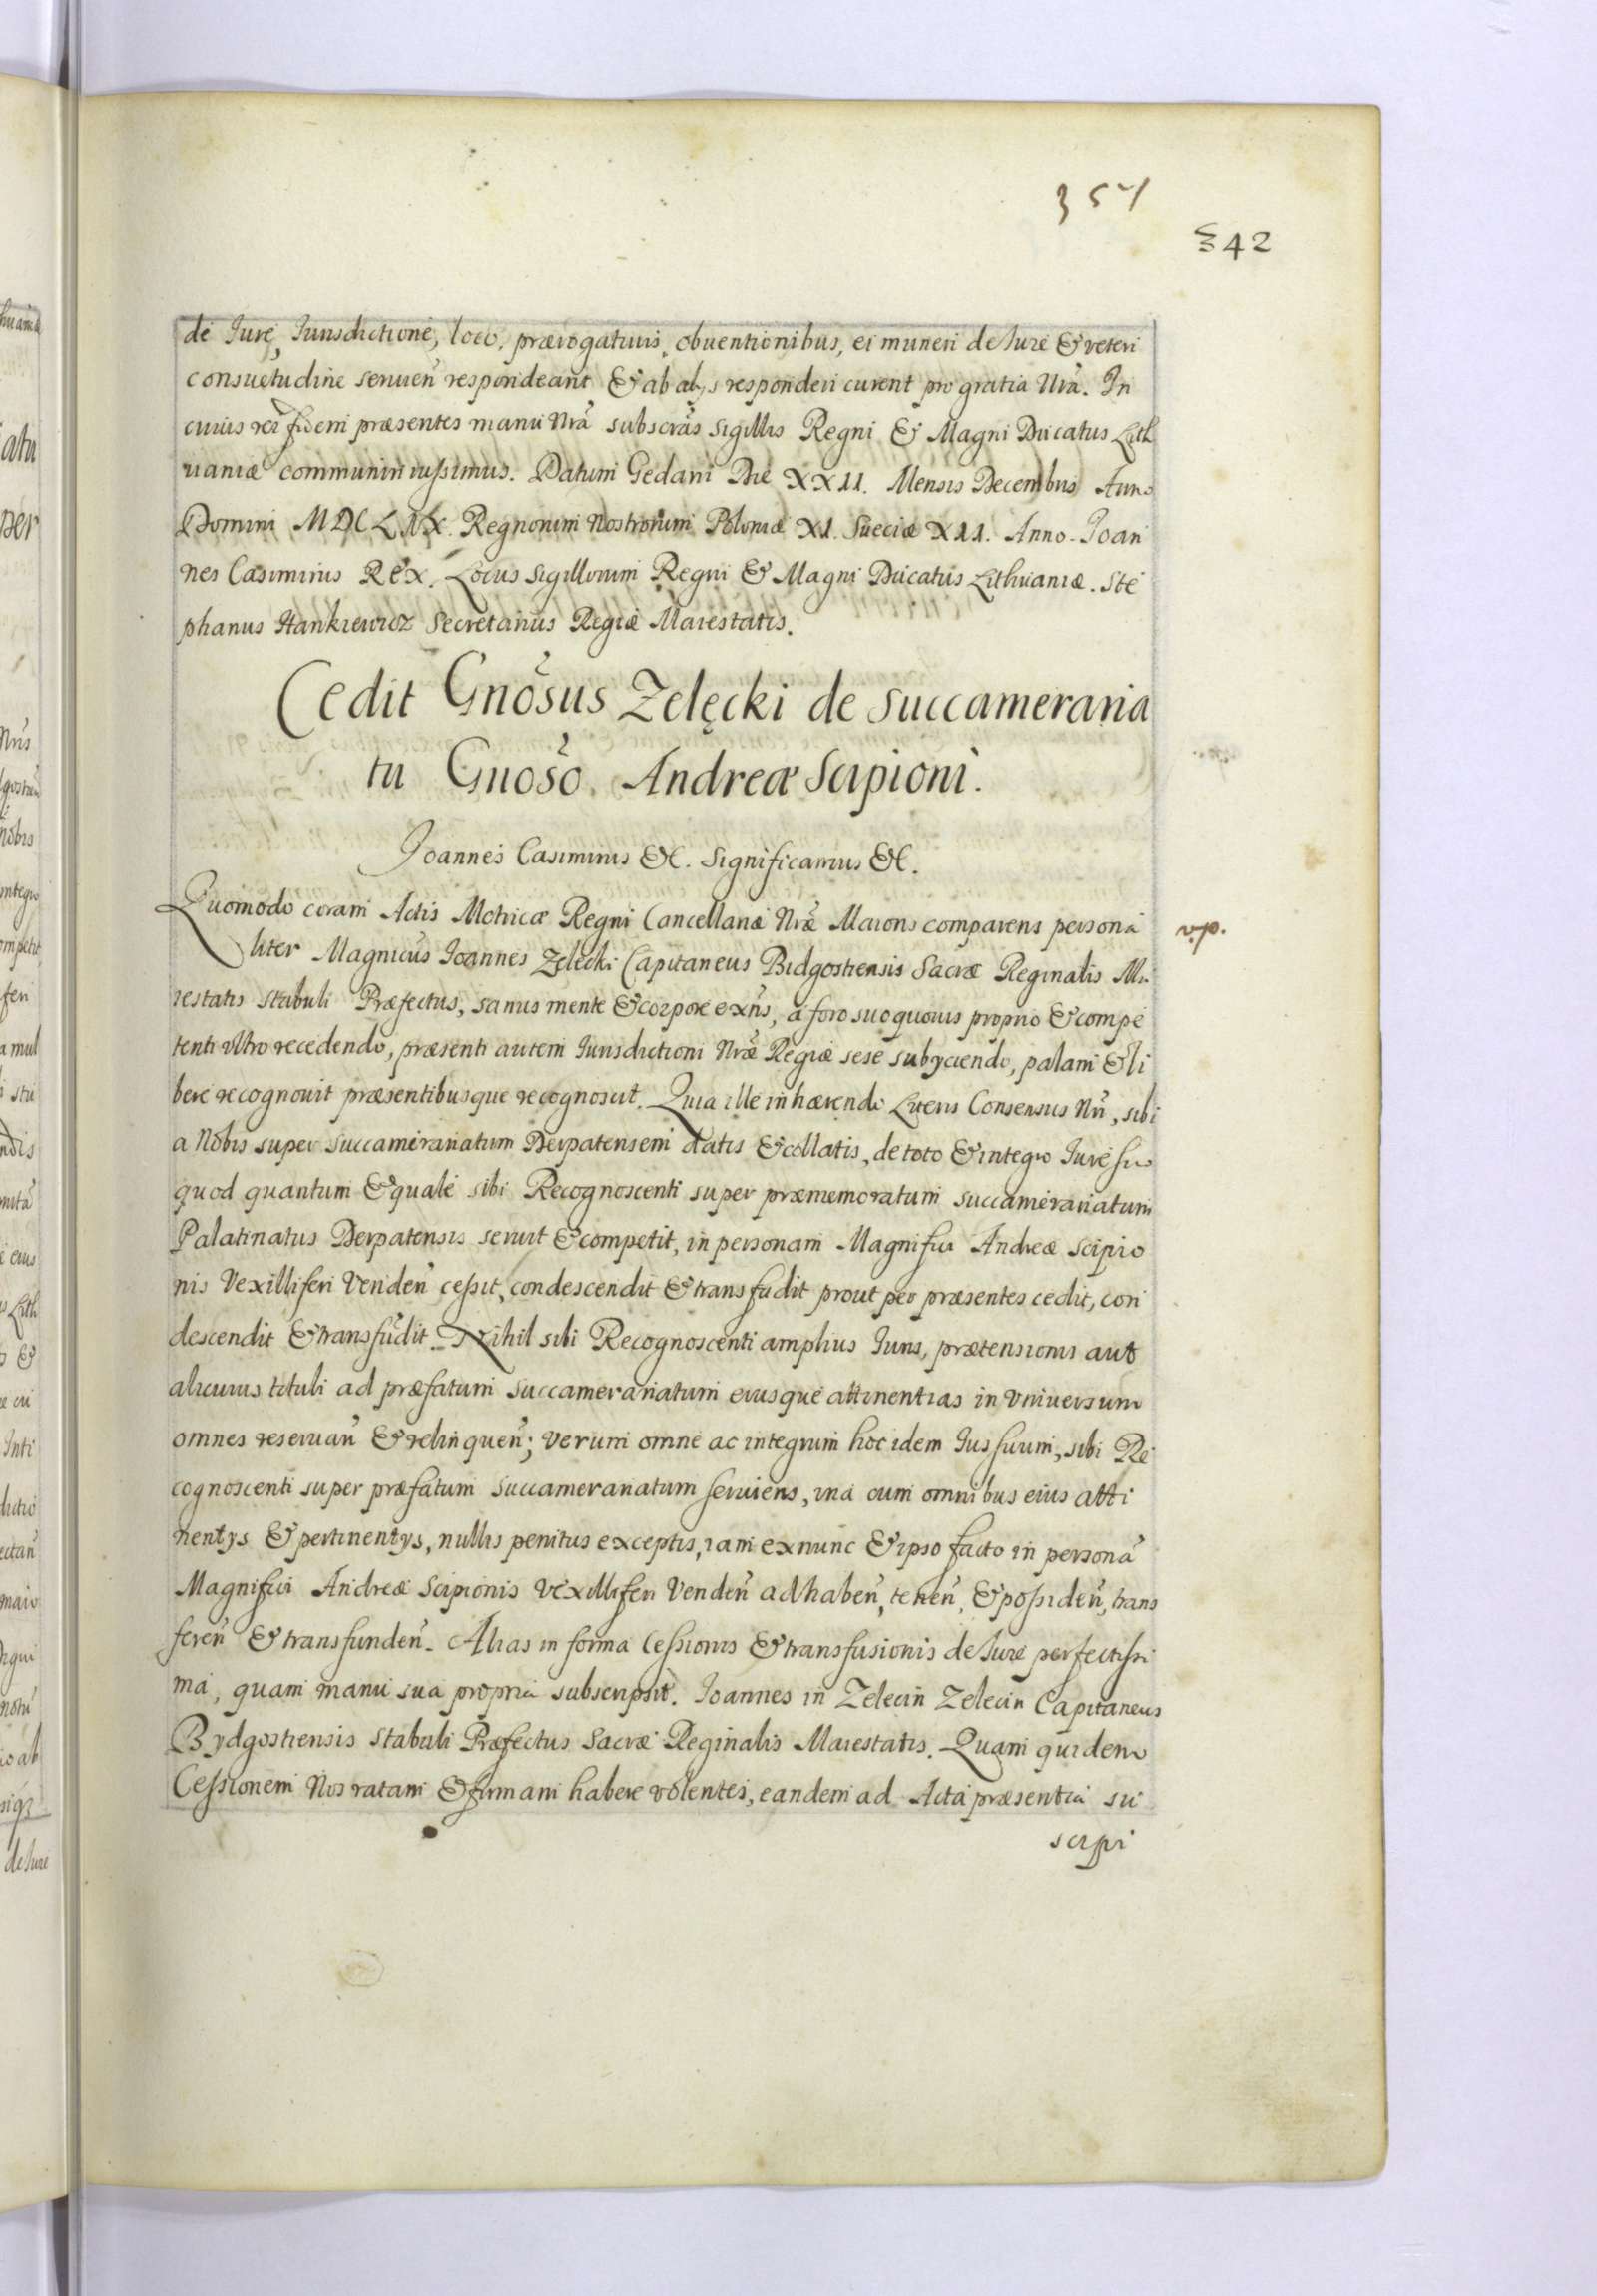 357
342
de Jure, Jurisdictione, loco, prærogativis, obventionibus, ei muneri de Jure & veteri
consuetudine servien̄ respondeant & ab alys responderi curent pro gratia Nrã. In
cuius rei fidem præsentes manu Nrã subscrãs sigillis Regni & Magni Ducatus Lith
uaniæ communiri iussimus. Datum Gedani Die XXII. Mensis Decembris Anno
Domini MDCLIX. Regnorum Nostrorum Poloniæ XI. Sueciæ XII. Anno. Joan
nes Casimirus Rex. Locus Sigillorum Regni & Magni Ducatus Lithuaniæ. Ste
phanus Hankiewicz Secretarius Regiæ Maiestatis.
Cedit Gnõsus Zelęcki de succameraria
tu Gnõso. Andreæ Scipioni.
Joannes Casimirus &c. Significamus &c.
Quomodo coram Actis Metricæ Regni Cancellariæ Nræ̃ Maioris comparens persona
v.p.
liter Magnicũs Joannes Zelecki Capitaneus Bidgostiensis Sacræ Reginalis Ma
iestatis stabuli Præfectus, sanus mente & corpore exñs, a foro suo quovis proprio & compe
tenti ultro recedendo, præsenti autem Jurisdictioni Nræ̃ Regiæ sese subyciendo, palam & li
bere recognovit præsentibusque recognoscit. Quia ille inhærendo Literis Consensus Nrĩ, sibi
a Nobis super succamerariatum Derpatensem datis & collatis, de toto & integro Jure suo
quod quantum & quale sibi Recognoscenti super præmemoratum succamerariatum
Palatinatus Derpatensis servit & competit, in personam Magnifici Andreæ Scipio
nis Vexilliferi Venden̄ cessit, condescendit & transfudit prout per præsentes cedit, con
descendit & transfudit. Nihil sibi Recognoscenti amplius Juris, prætensionis aut
alicuius tituli ad præfatum succamerariatum eiusque attinentias in Universum
omnes reservan̄ & relinquen̄; Verum omne ac integrum hoc idem Jus suum, sibi Re
cognoscenti super præfatum succamerariatum serviens, una cum omnibus eius atti
nentys & pertinentys, nullis penitus exceptis, iam exnunc & ipso facto in personã
Magnifici Andreæ Scipionis Vexilliferi Venden̄ ad haben̄, tenen̄, & possiden̄, trans
feren̄ & transfunden̄. Alias in forma Cessionis & transfusionis de Jure perfectissi
ma, quam manu sua propria subscripsit. Joannes in Zelecin Zelecin Capitaneus
Bydgostiensis Stabuli Præfectus Sacræ Reginalis Maiestatis. Quam quidem
Cessionem Nos ratam & firmam habere volentes, eandem ad Acta præsentia su
scipi